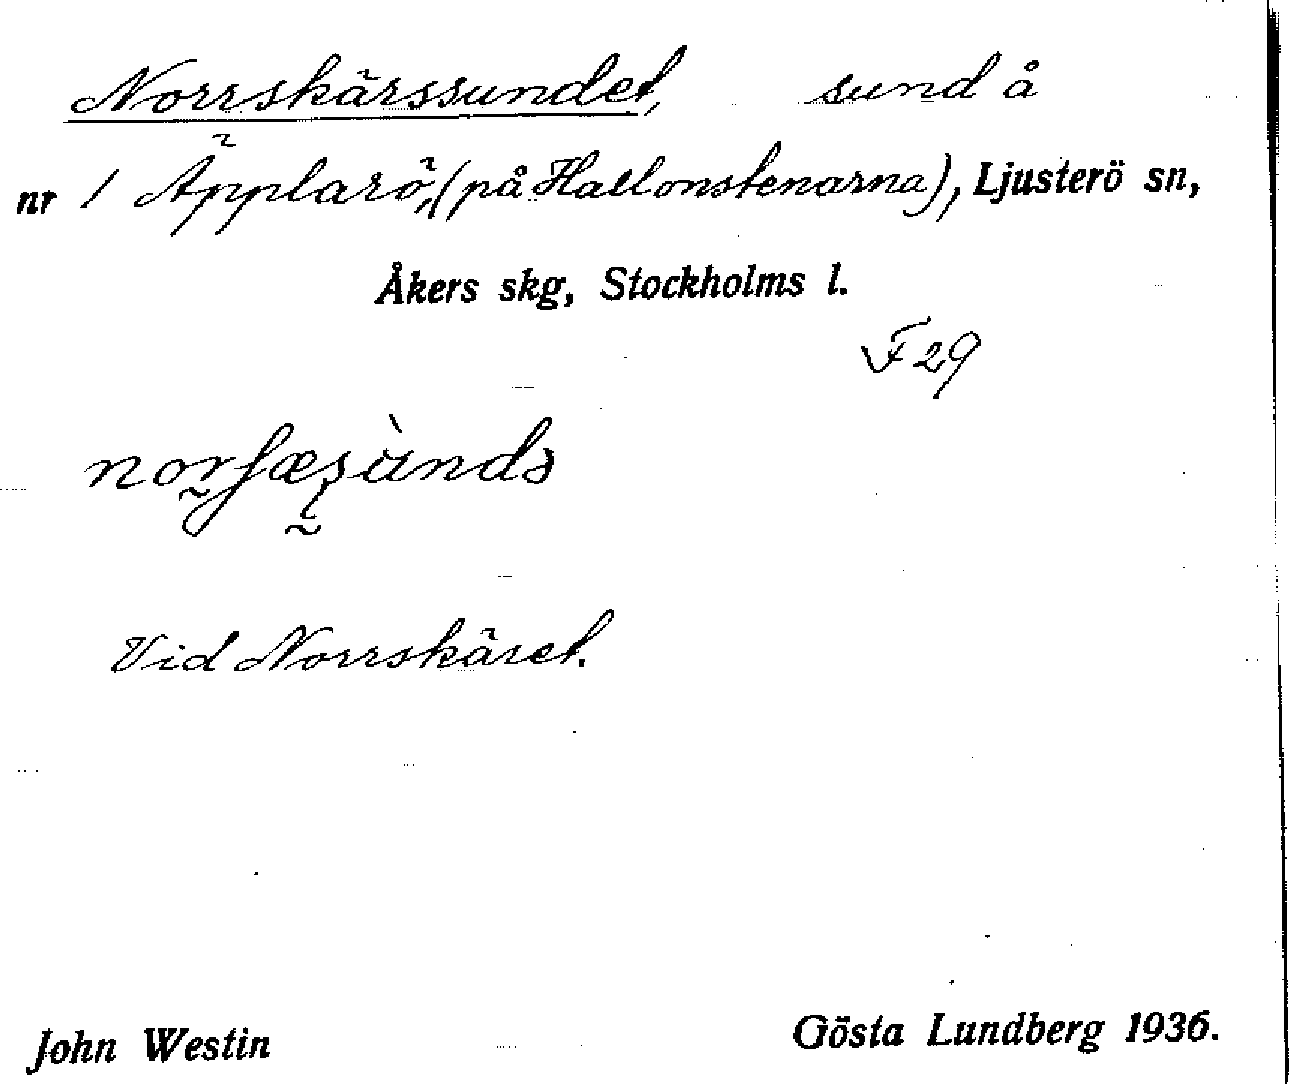 Norrskärssundet, sund å
nr 1 Äpplarö, (på Hallonstenarna), Ljusterö sn,
Åkers skg, Stockholms l.
F 29
Vid Norrskäret.
John Westin Gösta Lundberg 1936.